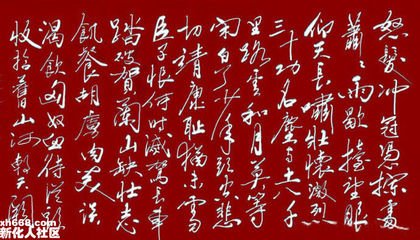 怒髮冲冠憑欄處
蕭蕭雨歇擡望眼
仰天長嘯壯懷激烈
三十功名塵与土八千
里路雲和月莫等
閑白了少年頭空悲
切靖康耻猶未雪
臣子恨何时滅駕長車
踏破賀蘭山缺壮志
飢餐胡虜肉笑談
渴飲匈奴血待從頭
收拾舊山河朝天闕
xh668.com
新化人社区